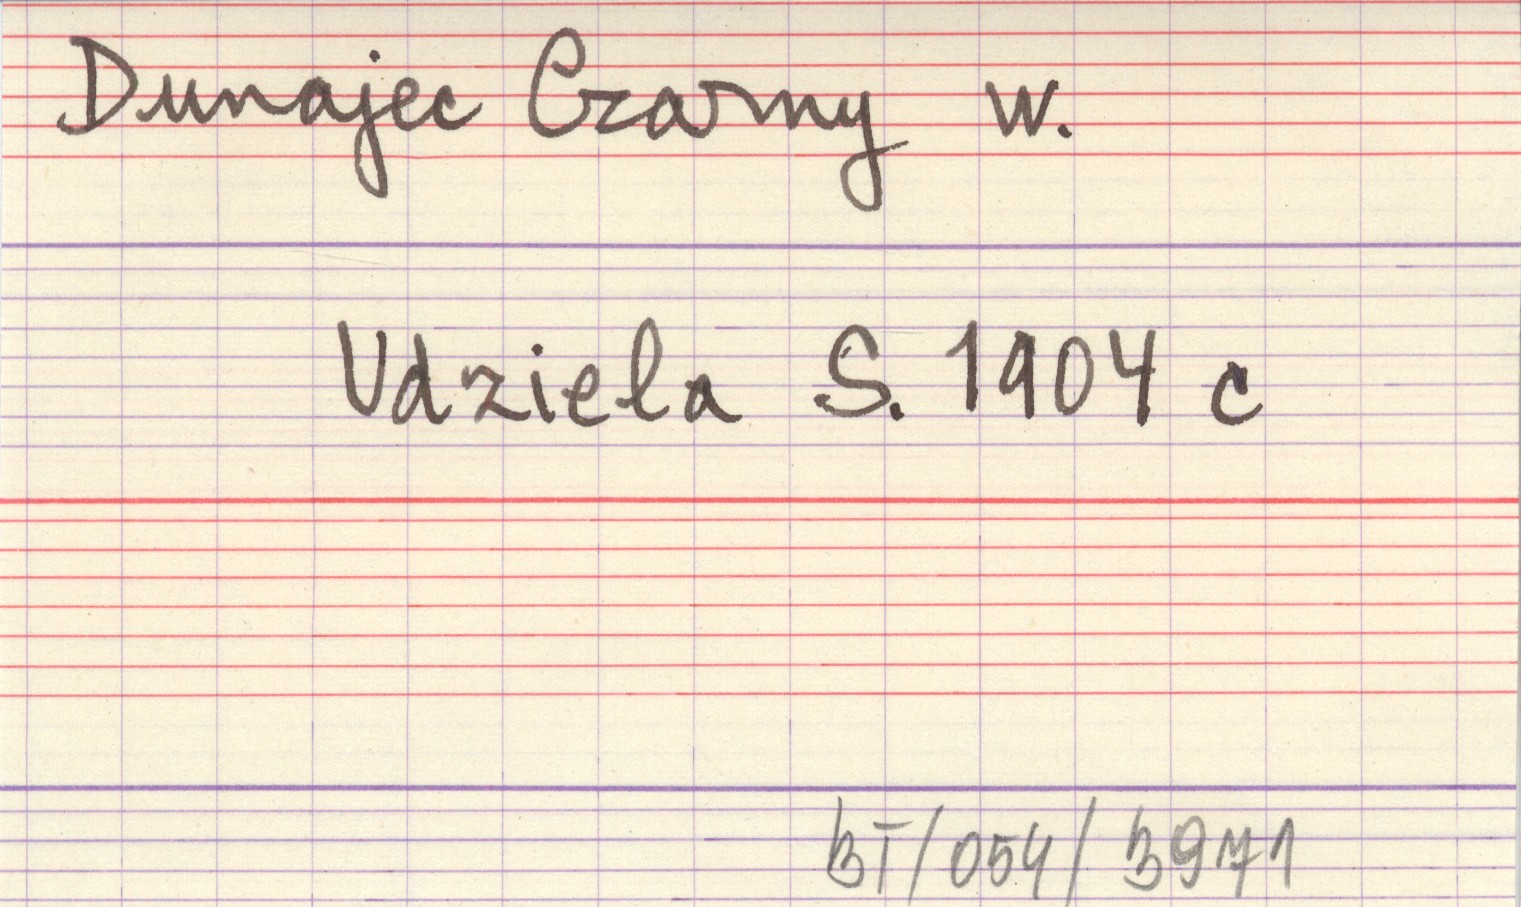 Dunajec Czarny w.
Udziela S. 1904 c
BT/054/3971